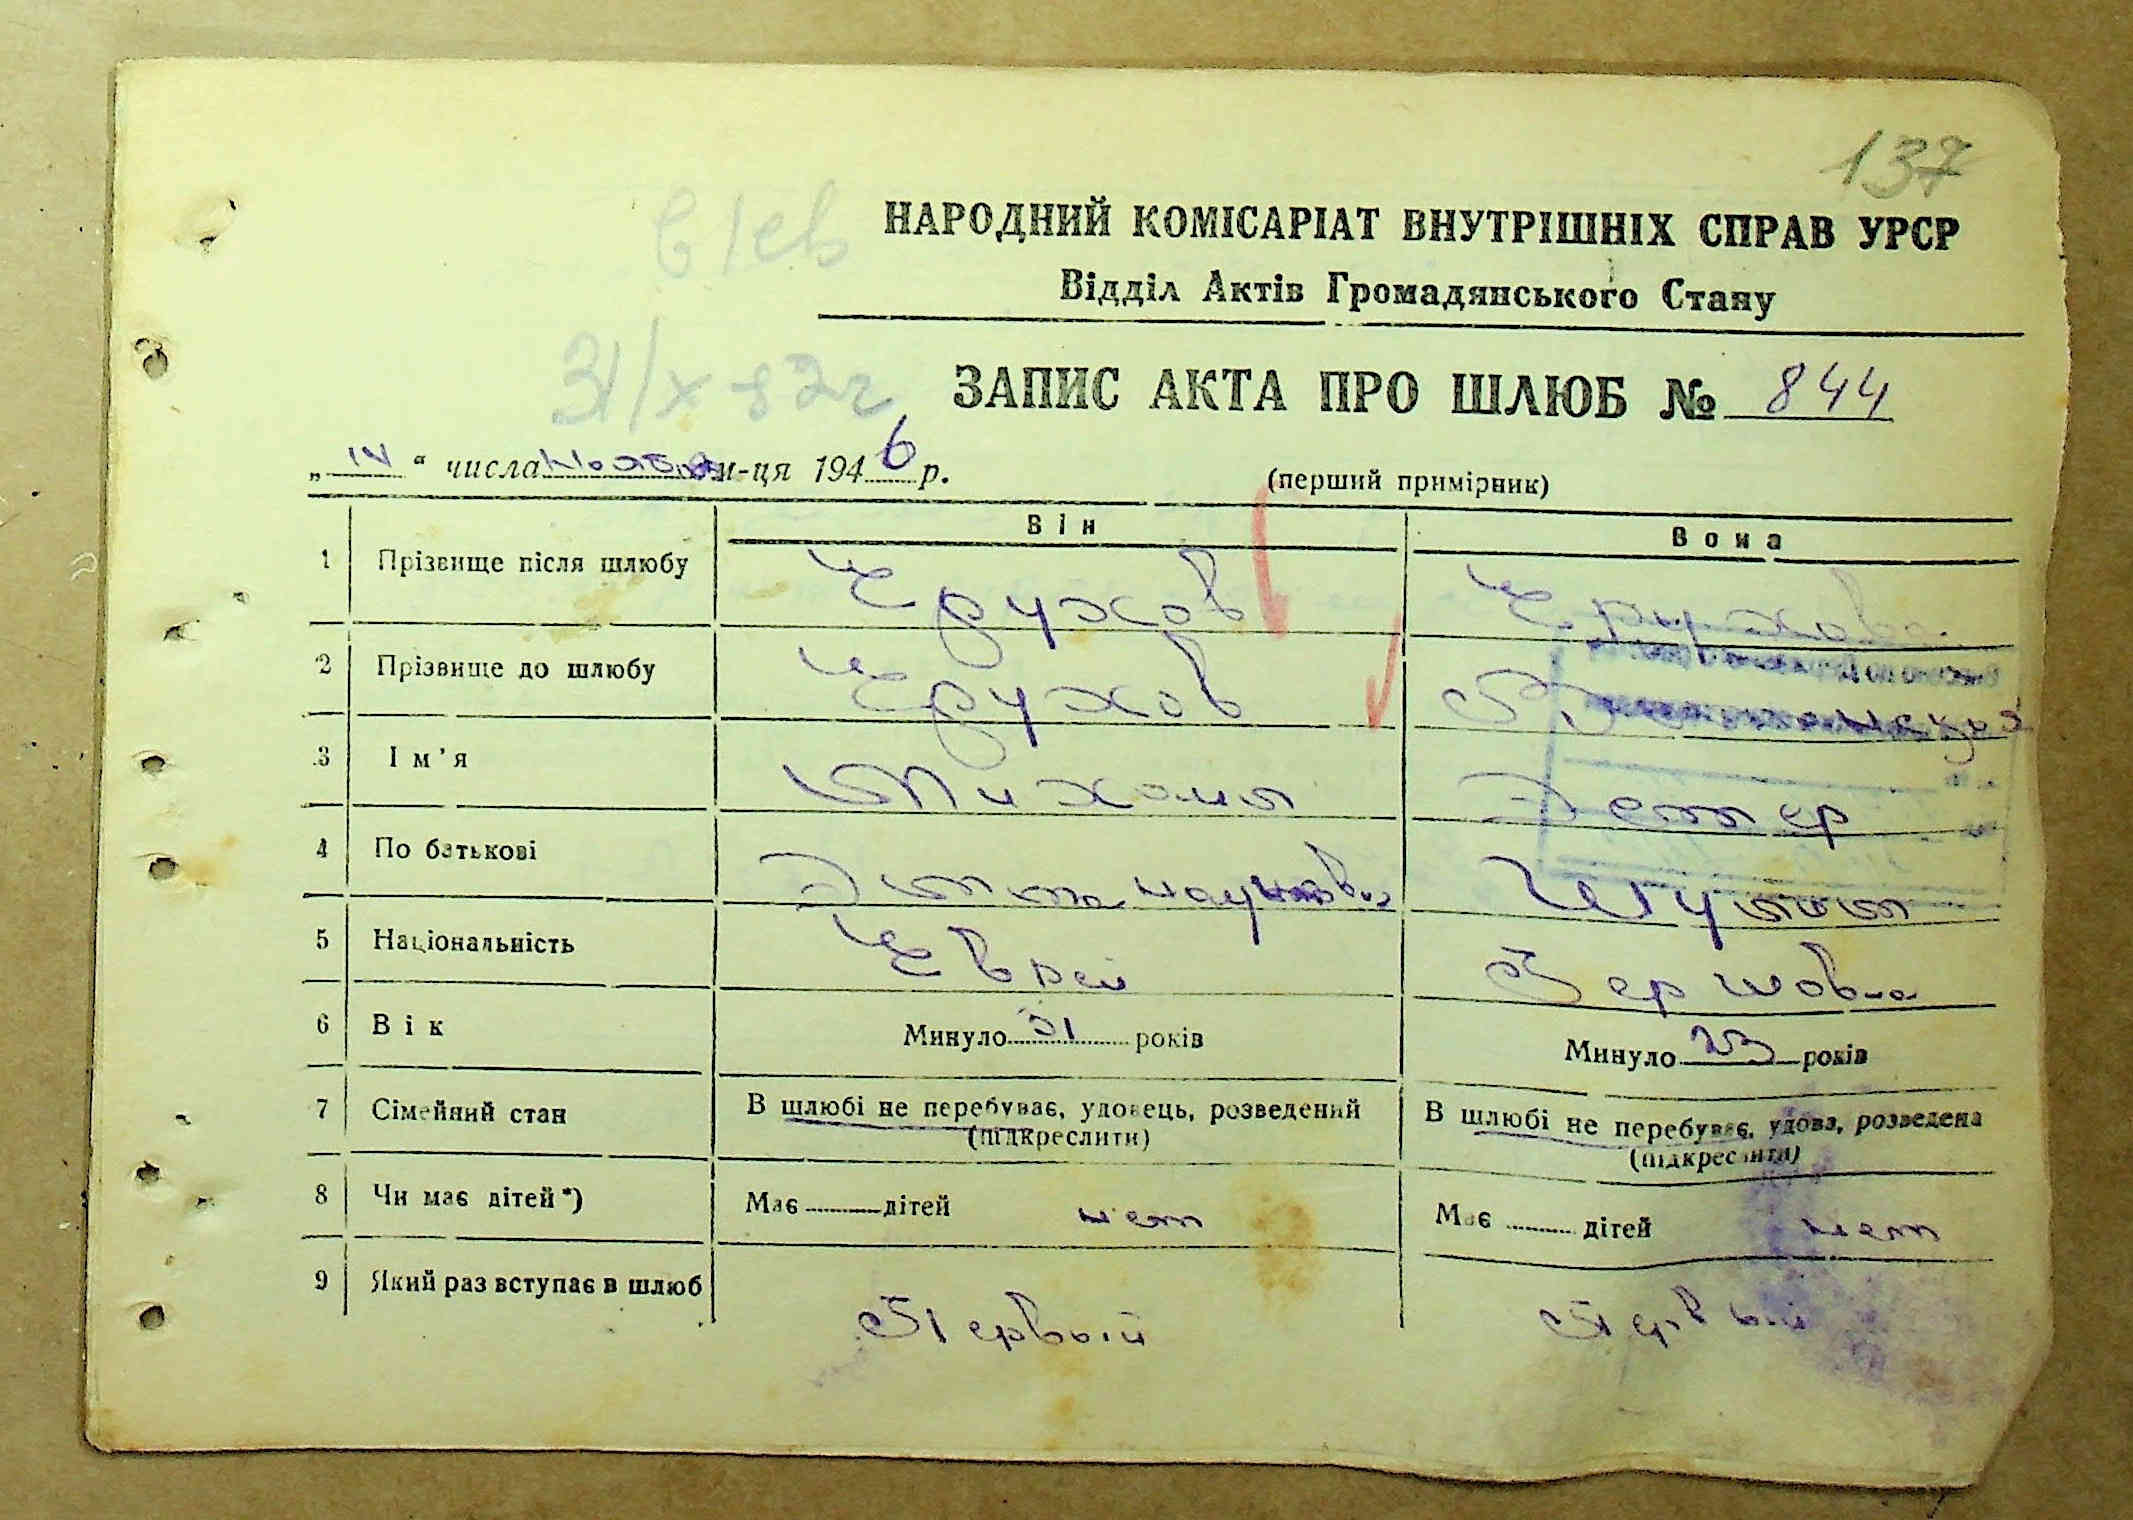 137
НАРОДНИЙ КОМІСАРІАТ ВНУТРІШНІХ СПРАВ УРСР
Відділ Актів Громадянського Стану
31/х
ЗАПИС АКТА ПРО ШЛЮБ № 844
" числа ноября м-ця 1946 р.
(перший примірник)
Він Вона
1 Прізвище після шлюбу Ерухов Ерухова
2 Прізвище до шлюбу Ерухов
3 Ім'я Михаил Эстер
4 По батькові
5 Національність Еврей Гершовна
6 Вік Минуло 31 років Минуло 23 років
7 Сімейний стан В шлюбі не перебуває, удовець, розведений В шлюбі не перебуває, удова, розведена
(підкреслити) (підкреслити)
8 Чи має дітей*) Має дітей нет Має дітей нет
9 Який раз вступає в шлюб Первый Первый